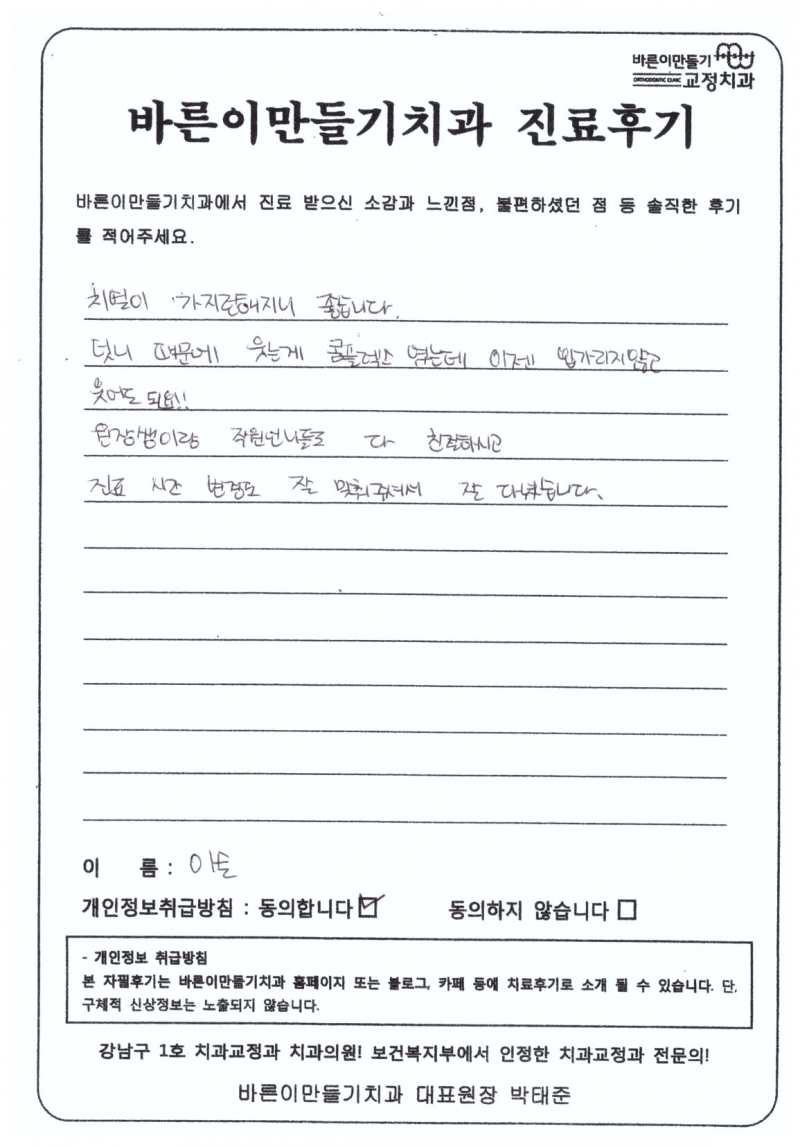 바른이만들기
ORTHODONTIC CLINIC 교정치과
바른이만들기치과 진료후기
바른이만들기치과에서 진료 받으신 소감과 느낀점, 불편하셨던 점 등 솔직한 후기
를 적어주세요.
치열이 가지런해지니 좋습니다.
덧니 때문에 웃는게 콤플렉스 였는데 이젠 입가리지않고
웃어도 되요!!
원장쌤이랑 직원언니들도 다 친절하시고
진료 시간 변경도 잘 맞춰주셔서 잘 다녔습니다.
이 름 :
개인정보취급방침 : 동의합니다 동의하지 않습니다
- 개인정보 취급방침
본 자필후기는 바른이만들기치과 홈페이지 또는 블로그, 카페 등에 치료후기로 소개 될 수 있습니다. 단,
구체적 신상정보는 노출되지 않습니다.
강남구 1호 치과교정과 치과의원! 보건복지부에서 인정한 치과교정과 전문의!
바른이만들기치과 대표원장 박태준